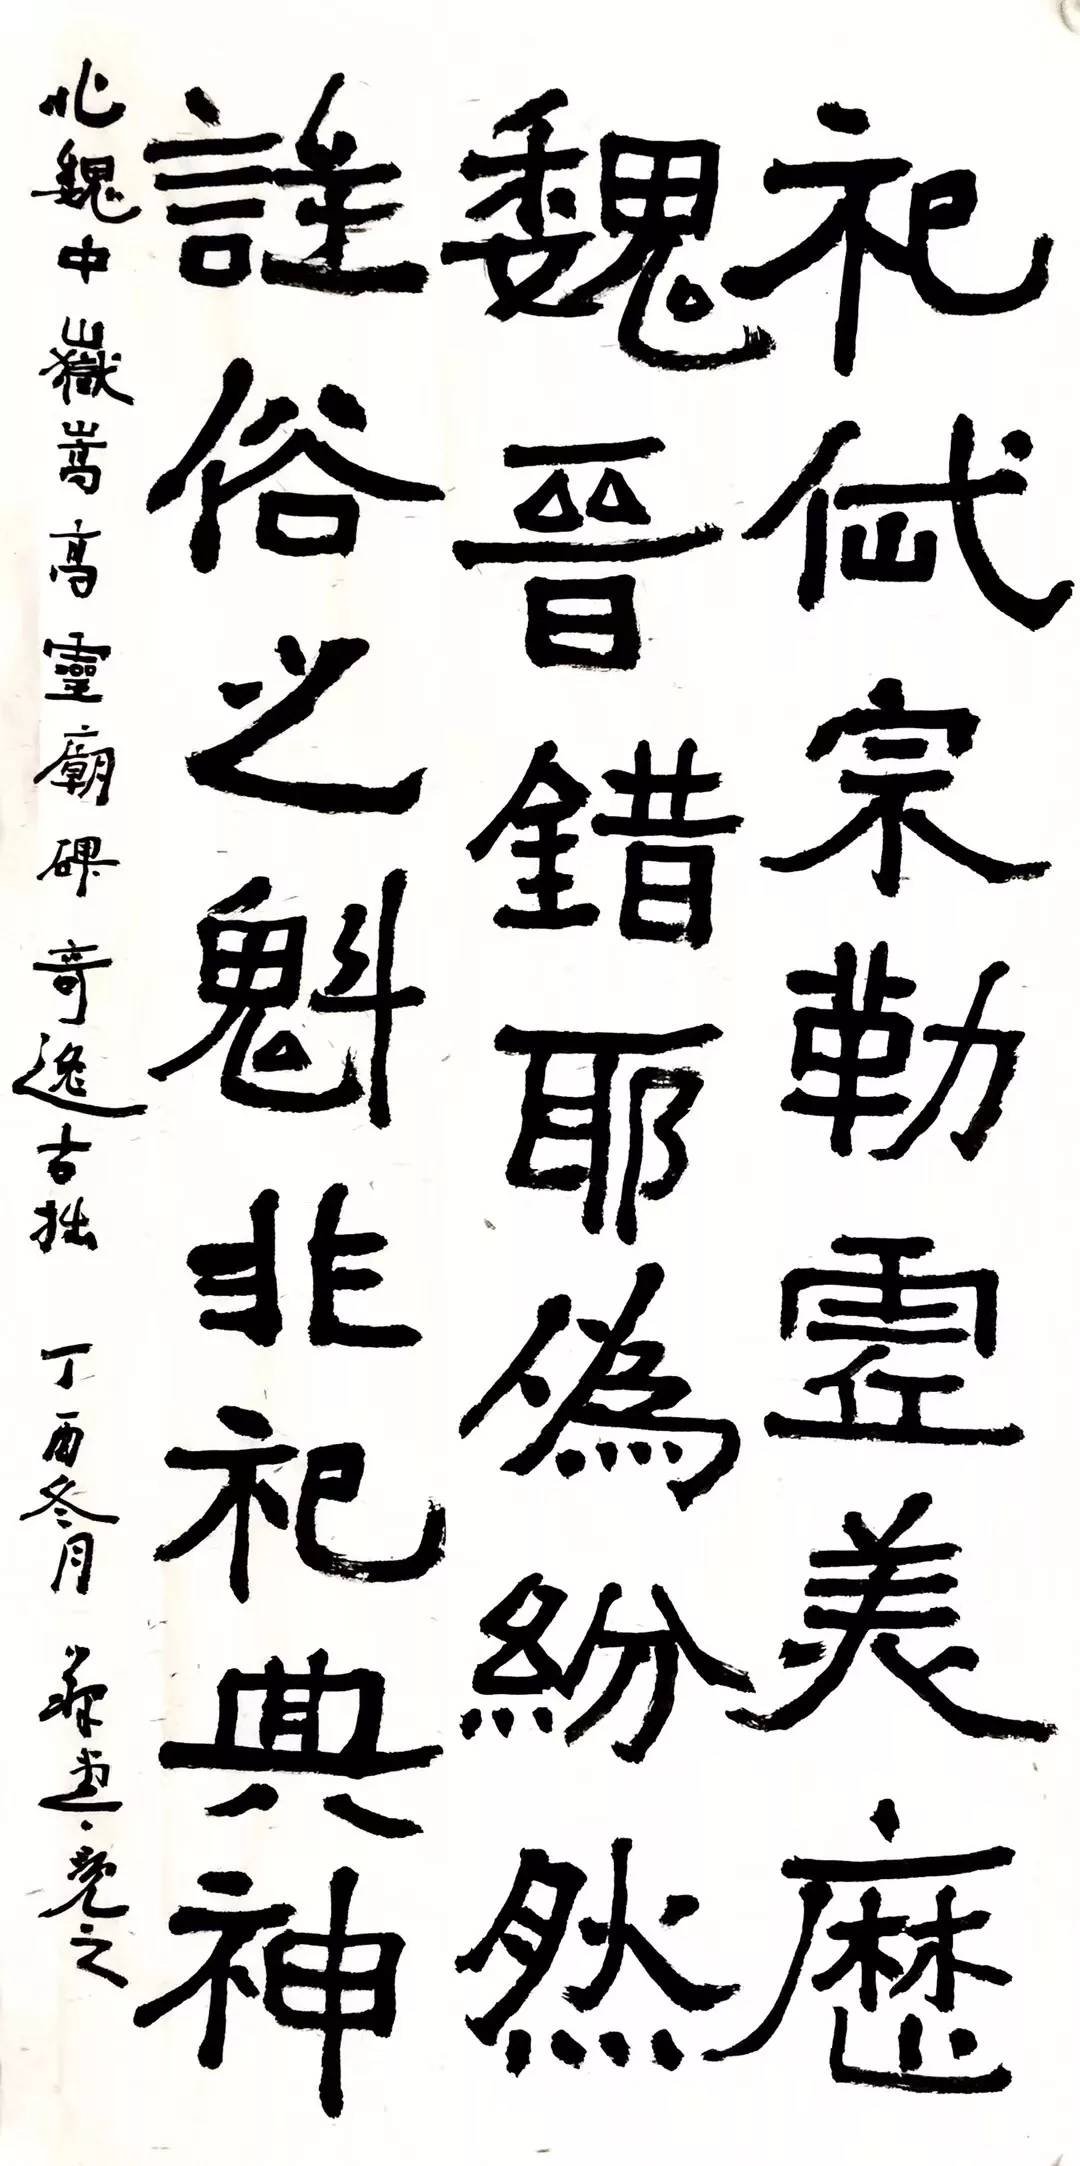 祀岱宗勒霊美歷
魏晉錯耶偽紛然
俗之魁非祀典神
北魏中嶽嵩高靈廟碑奇逸古拙 丁酉冬月 之